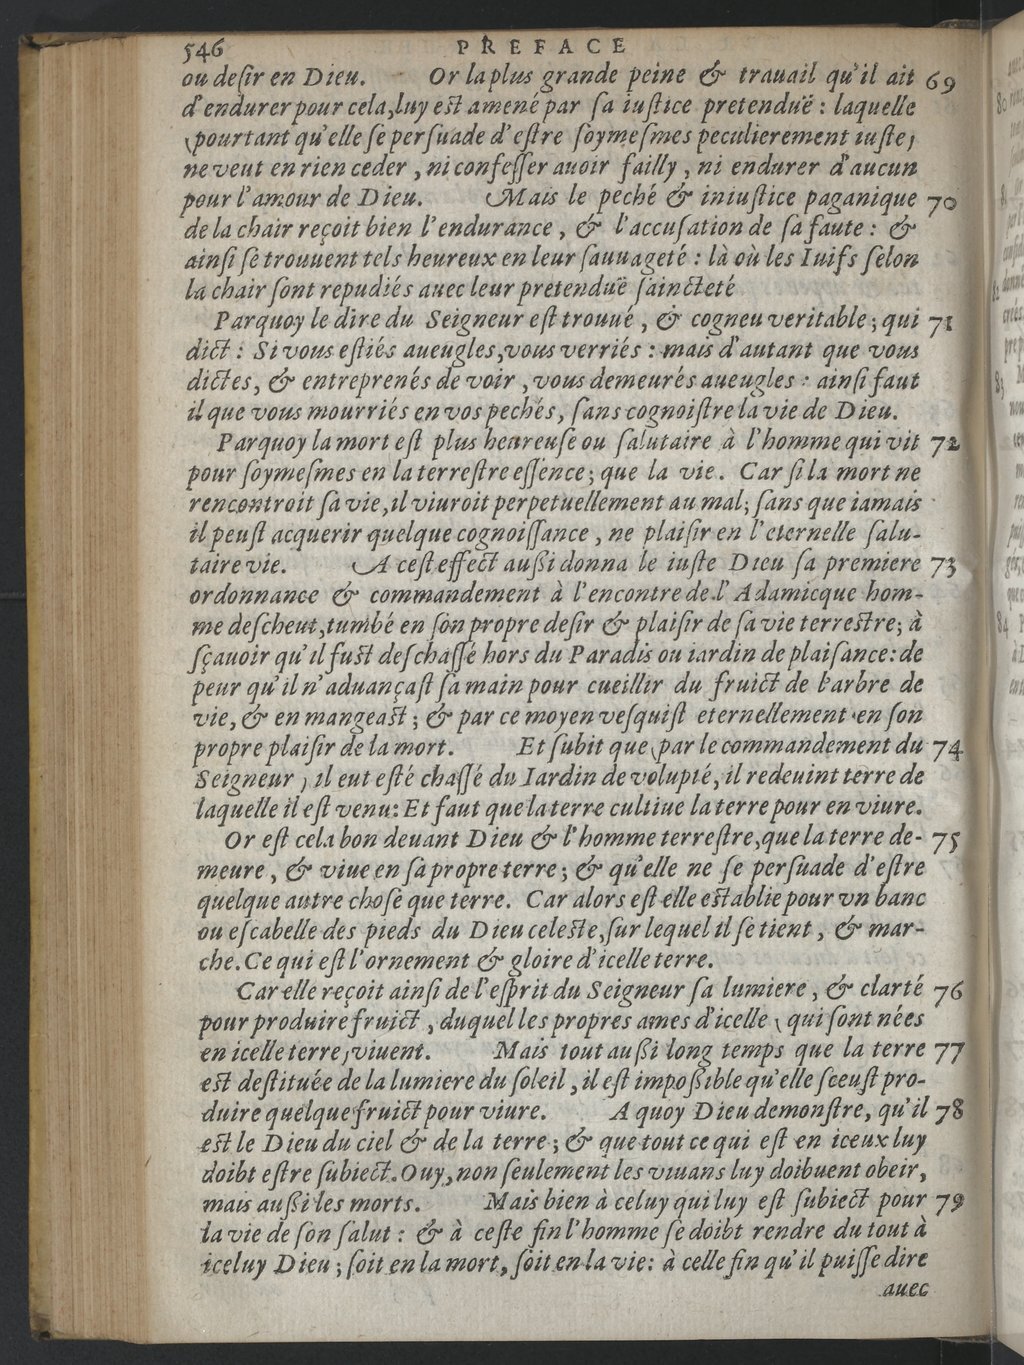 546 PREFACE
ou deſir en Dieu. Or la plus grande peine & trauail qu'il ait 69
d'endurer pour cela, luy eſt amené par ſa iuſtice pretenduë : laquelle
(pourtant qu'elle ſe perſuade d'eſtre ſoymeſmes peculierement iuſte)
ne veut en rien ceder, ni confeſſer auoir failly, ni endurer d'aucun
pour l'amour de Dieu. Mais le peché & iniuſtice paganique 70
de la chair reçoit bien l'endurance, & l'accuſation de ſa faute : &
ainſi ſe trouuent tels heureux en leur ſauuageté : là où les Iuifs ſelon
la chair ſont repudiés auec leur pretenduë ſaincteté
Parquoy le dire du Seigneur eſt trouué, & cogneu veritable ; qui 71
dict : Si vous eſtiés aueugles, vous verriés : mais d'autant que vous
dictes, & entreprenés de voir, vous demeurés aueugles : ainſi faut
il que vous mourriés en vos pechés, ſans cognoiſtre la vie de Dieu.
Parquoy la mort eſt plus heureuſe ou ſalutaire à l'homme qui vit 72
pour ſoymeſmes en la terreſtre eſſence ; que la vie. Car ſi la mort ne
rencontroit ſa vie, il viuroit perpetuellement au mal ; ſans que iamais
il peuſt acquerir quelque cognoiſſance, ne plaiſir en l'eternelle ſalu-
taire vie. A ceſt effect außi donna le iuſte Dieu ſa premiere 73
ordonnance & commandement à l'encontre de l'Adamicque hom-
me deſcheut, tumbé en ſon propre deſir & plaiſir de ſa vie terreſtre ; à
ſçauoir qu'il fuſt deſchaſſé hors du Paradis ou iardin de plaiſance : de
peur qu'il n'aduançaſt ſa main pour cueillir du fruict de l'arbre de
vie, & en mangeaſt ; & par ce moyen veſquiſt eternellement en ſon
propre plaiſir de la mort. Et ſubit que (par le commandement du 74
Seigneur) il eut eſté chaſſé du Iardin de volupté, il redeuint terre de
laquelle il eſt venu : Et faut que la terre cultiue la terre pour en viure.
Or eſt cela bon deuant Dieu & l'homme terreſtre, que la terre de- 75
meure, & viue en ſa propre terre ; & qu'elle ne ſe perſuade d'eſtre
quelque autre choſe que terre. Car alors eſt elle eſtablie pour vn banc
ou eſcabelle des pieds du Dieu celeſte, ſur lequel il ſe tient, & mar-
che. Ce qui eſt l'ornement & gloire d'icelle terre.
Car elle reçoit ainſi de l'eſprit du Seigneur ſa lumiere, & clarté 76
pour produire fruict, duquel les propres ames d'icelle (qui ſont nées
en icelle terre) viuent. Mais tout außi long temps que la terre 77
eſt deſtituée de la lumiere du ſoleil, il eſt impoßible qu'elle ſceuſt pro-
duire quelque fruict pour viure. A quoy Dieu demonſtre, qu'il 78
eſt le Dieu du ciel & de la terre ; & que tout ce qui eſt en iceux luy
doibt eſtre ſubiect. Ouy, non ſeulement les viuans luy doibuent obeir,
mais außi les morts. Mais bien à celuy qui luy eſt ſubiect pour 79
la vie de ſon ſalut : & à ceſte fin l'homme ſe doibt rendre du tout à
iceluy Dieu ; ſoit en la mort, ſoit en la vie : à celle fin qu'il puiſſe dire
auec